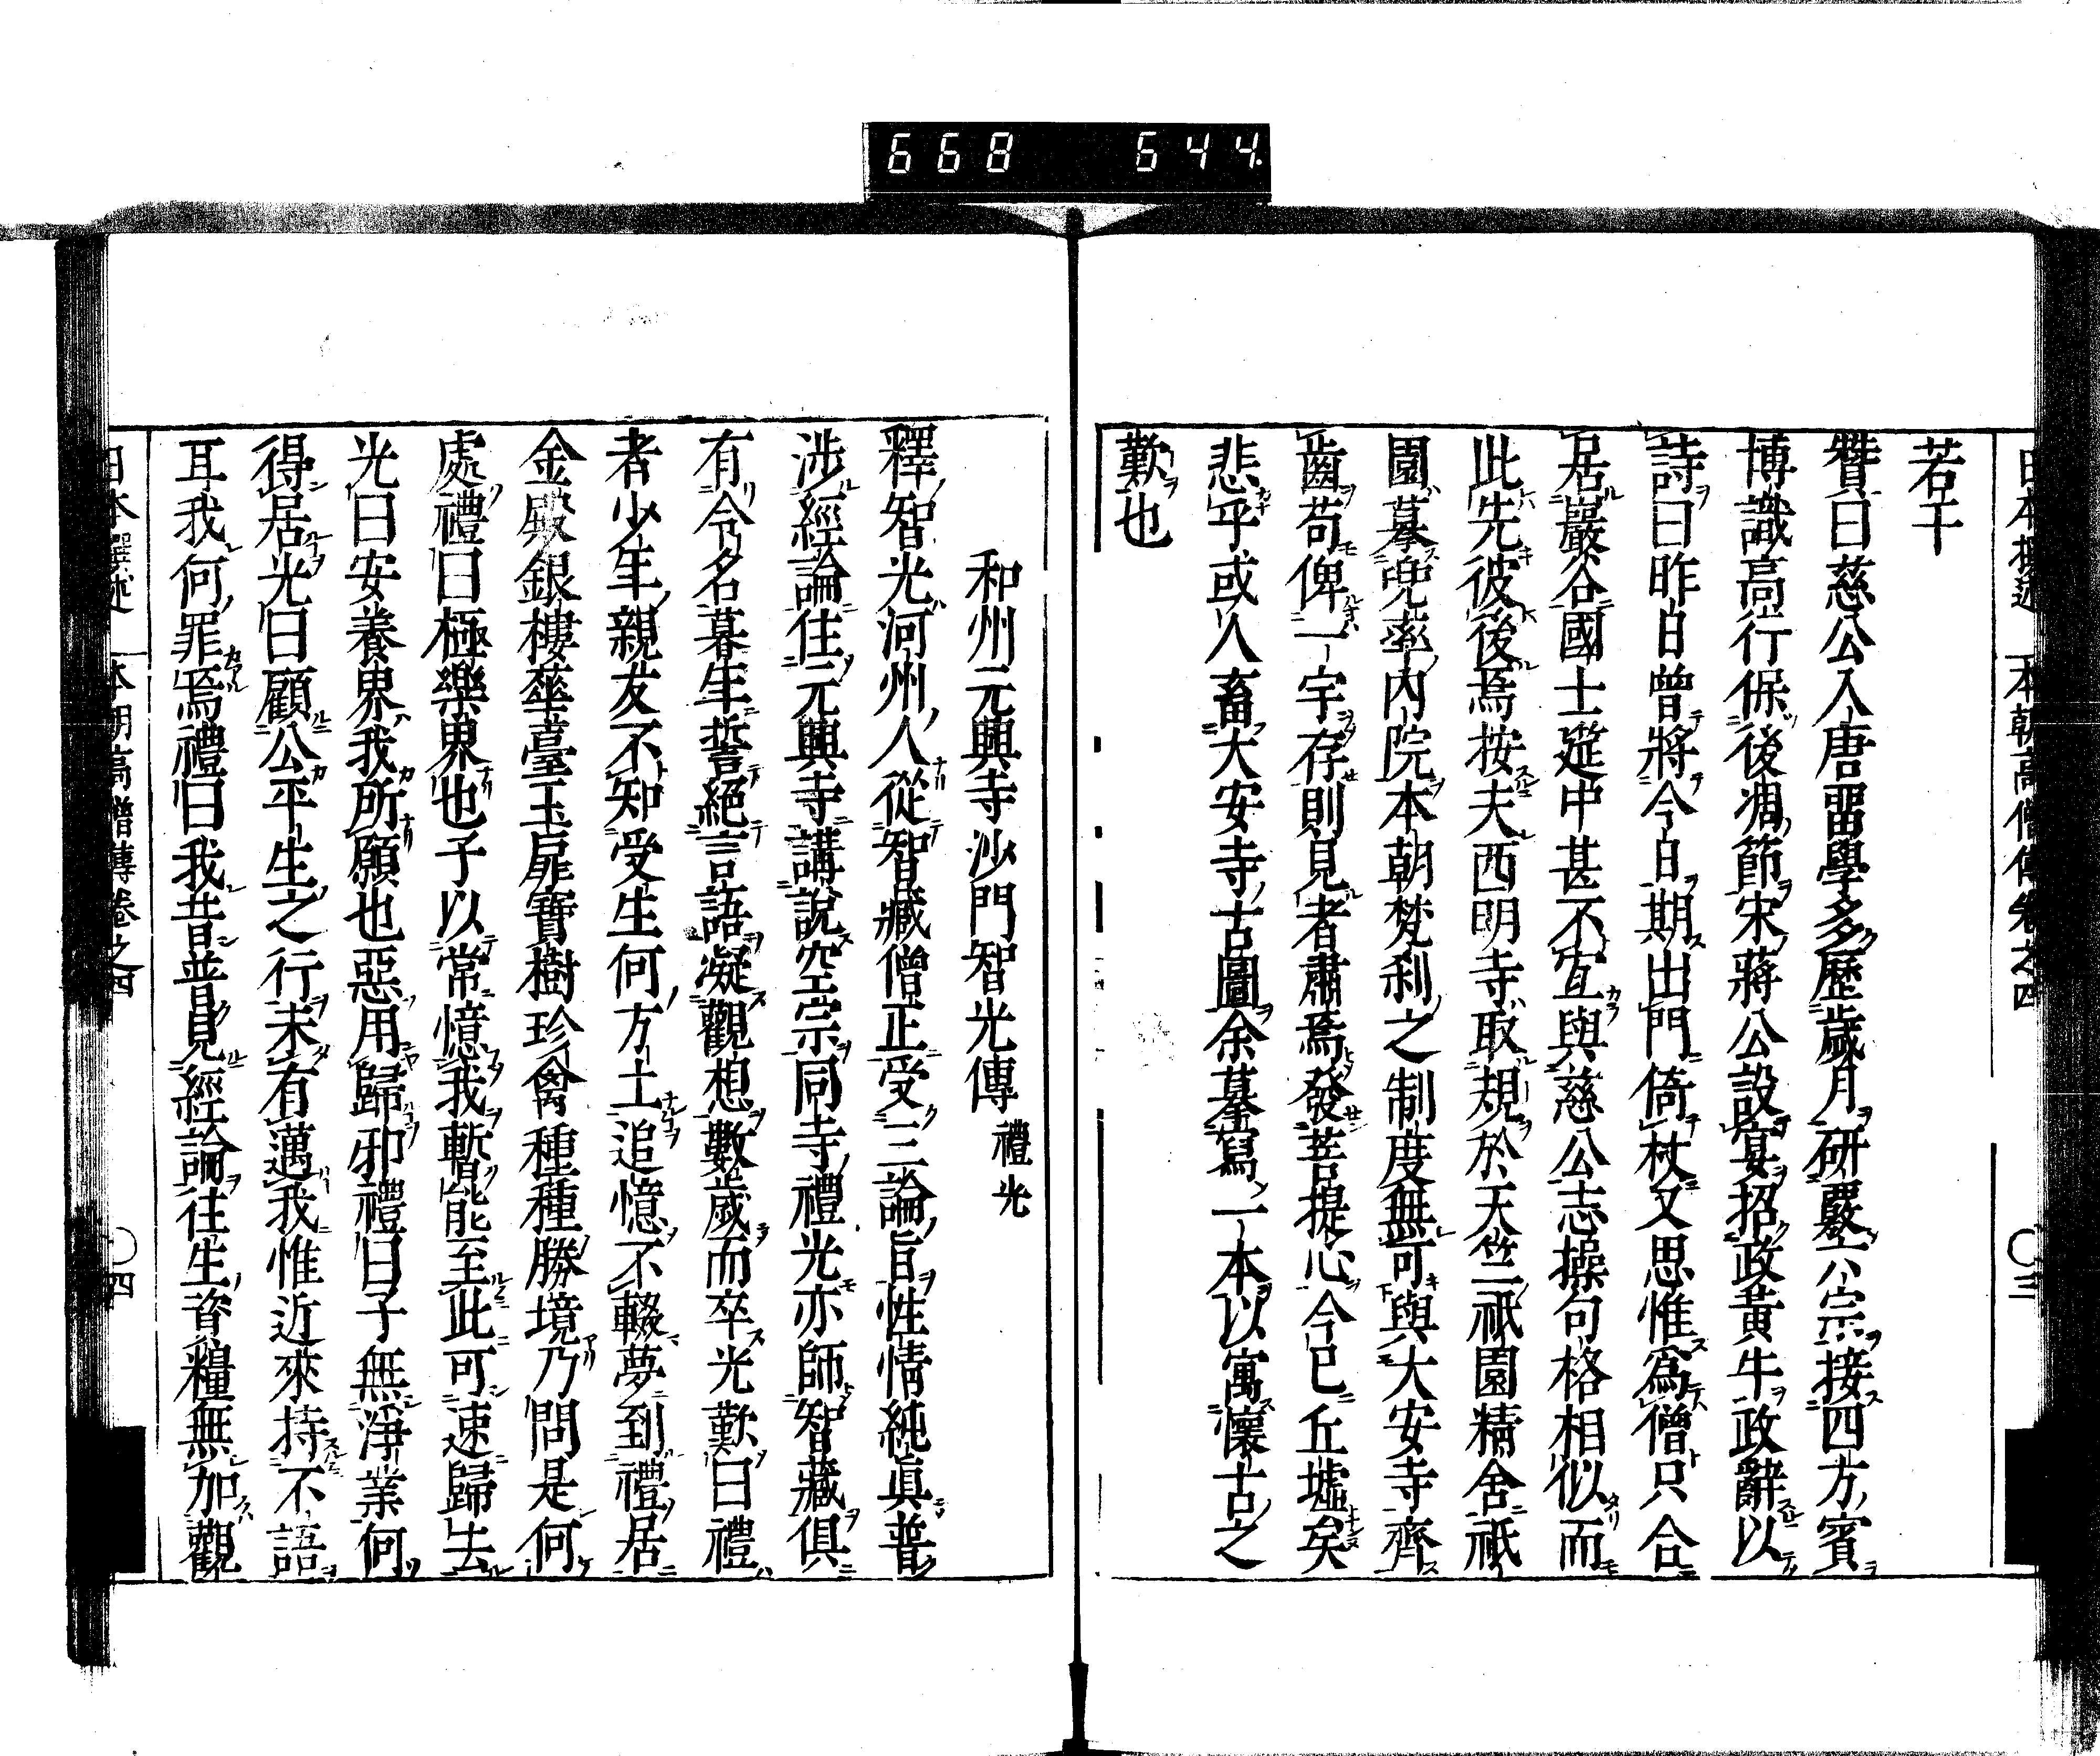 668 644
日本撰述 本朝高僧傳卷之四 〇三
若干
贊曰慈公入唐留學多歷歲月研覈六宗接四方賓
博識高行保後凋節宋蔣公設宴招政黃牛政辭以
詩曰昨日曾將今日期出門倚杖又思惟爲僧只合
居巖谷國士筵中甚不宜與慈公志操句格相似而
此先彼後焉按夫西明寺取規於天竺祇園精舍祇
園摹兜率内院本朝梵刹之制度無可與大安寺齊
齒苟俾一宇存則見者肅焉發菩提心今已丘墟矣
悲乎或人畜大安寺古圖余摹寫一本以寓懷古之
歎也
和州元興寺沙門智光傳 禮光
釋智光河州人從智藏僧正受三論旨性情純眞普
涉經論住元興寺講說空宗同寺禮光亦師智藏俱
有令名暮年誓絕言語凝觀想數歲而卒光歎曰禮
者少年親友不知受生何方土追憶不輟夢到禮居
金殿銀樓華臺玉扉寶樹珍禽種種勝境乃問是何
處禮曰極樂界也子以常憶我暫能至此可速歸去
光曰安養界我所願也惡用歸邪禮曰子無淨業何
得居光曰顧公平生之行未有邁我惟近來持不語
耳我何罪焉禮曰我昔普見經論往生資糧無加觀
日本撰述 本朝高僧傳卷之四 〇四